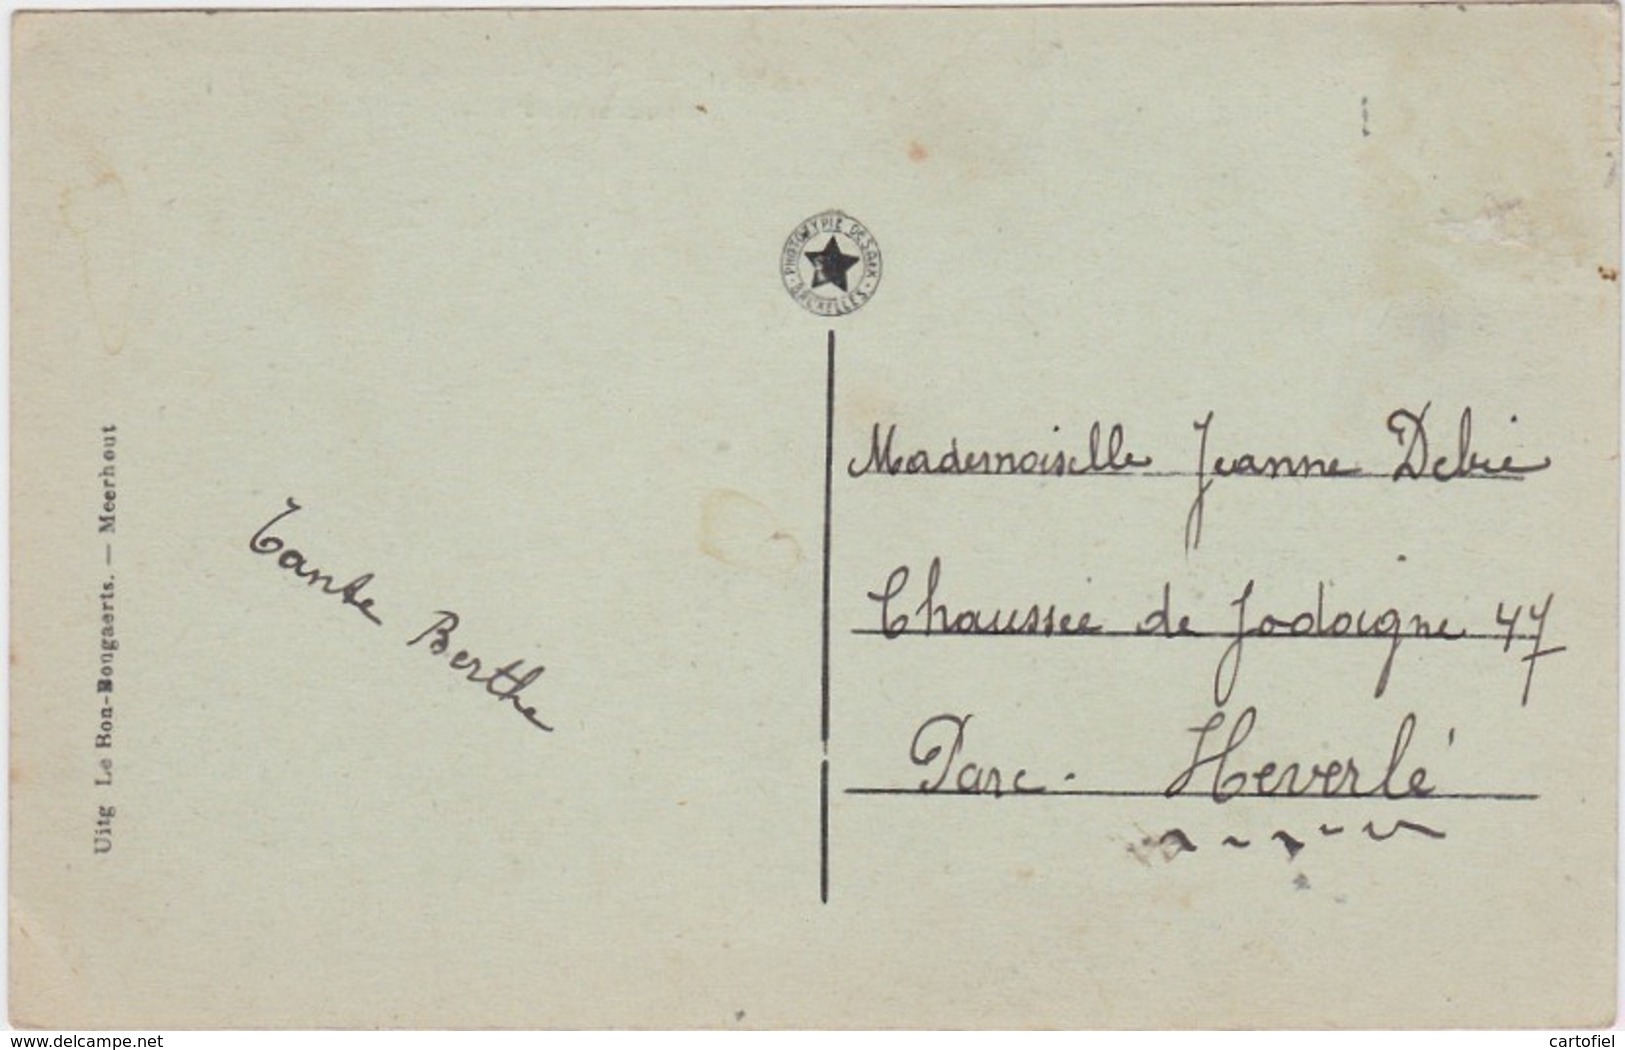 PHOTOTYPIE DESAIX
BRUXELLES
Uitg Le Bon-Bougaerts. — Meerhout
Tante Berthe
Mademoiselle Jeanne Debie
Chaussée de Jodoigne 47
Parc - Heverlé
www.delcampe.net
cartofiel